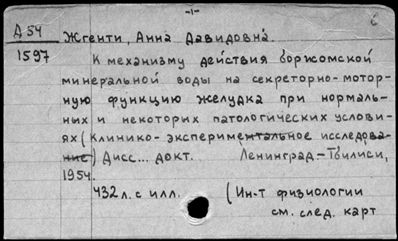 -1-
6
Д 54
1597
Жгенти, Анна Давидовна.
К механизму действия боржомской
минеральной воды на секреторно-мотор-
ную функцию желудка при нормаль-
ных и некоторих патологических услови-
ях (Клинико-экспериментальное исследова-
ние) Дисс... докт. Ленинград-Тбилиси,
1954.
432 л. с илл. (Ин-т физиологии
см. след. карт